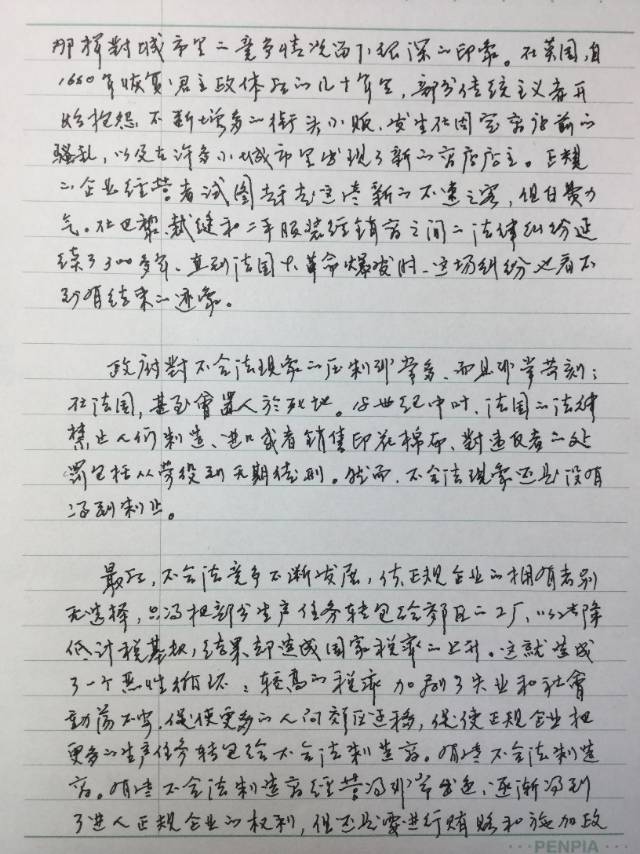 那样對城市里的竞争情况留下很深的印象。在英国,自
1660年恢复君主政体后的几十年里,部分传统主义者开
始抱怨不断增多的街头小贩,发生在固定店铺前的
骚乱,以及在许多小城市里出现了新的店店店主。正规
的企业经营者试图去赶走这些新的不速之客,但白费力
气。在巴黎,裁缝和二手服装经销商之间的法律纠纷延
续了300多年,直到法国大革命爆发时,这场纠纷也看不
到有结束的迹象。
政府對不合法现象的压制非常多,而且非常苛刻;
在法国,甚至會置人於死地。18世纪中叶,法国的法律
禁止人们制造、進口或者销售印花棉布,對违反者的处
罚包括从劳役到无期徒刑。然而,不合法现象还是没有
得到制止。
最后,不合法竞争不断发展,使正规企业的拥有者别
无选择,只得把部分生产任务转包给郊区的工厂,以此降
低计税基数,结果却造成国家税率的上升。这就造成
了一个恶性循环:较高的税率加剧了失业和社會
動荡不安,促使更多的人向郊区迁移,促使正规企业把
更多的生产任务转包给不合法制造商。有些不合法制造
商。有些不合法制造商经营得非常出色,逐渐得到
了進入正规企业的权利,但还是要進行贿赂和施加政
PENPIA